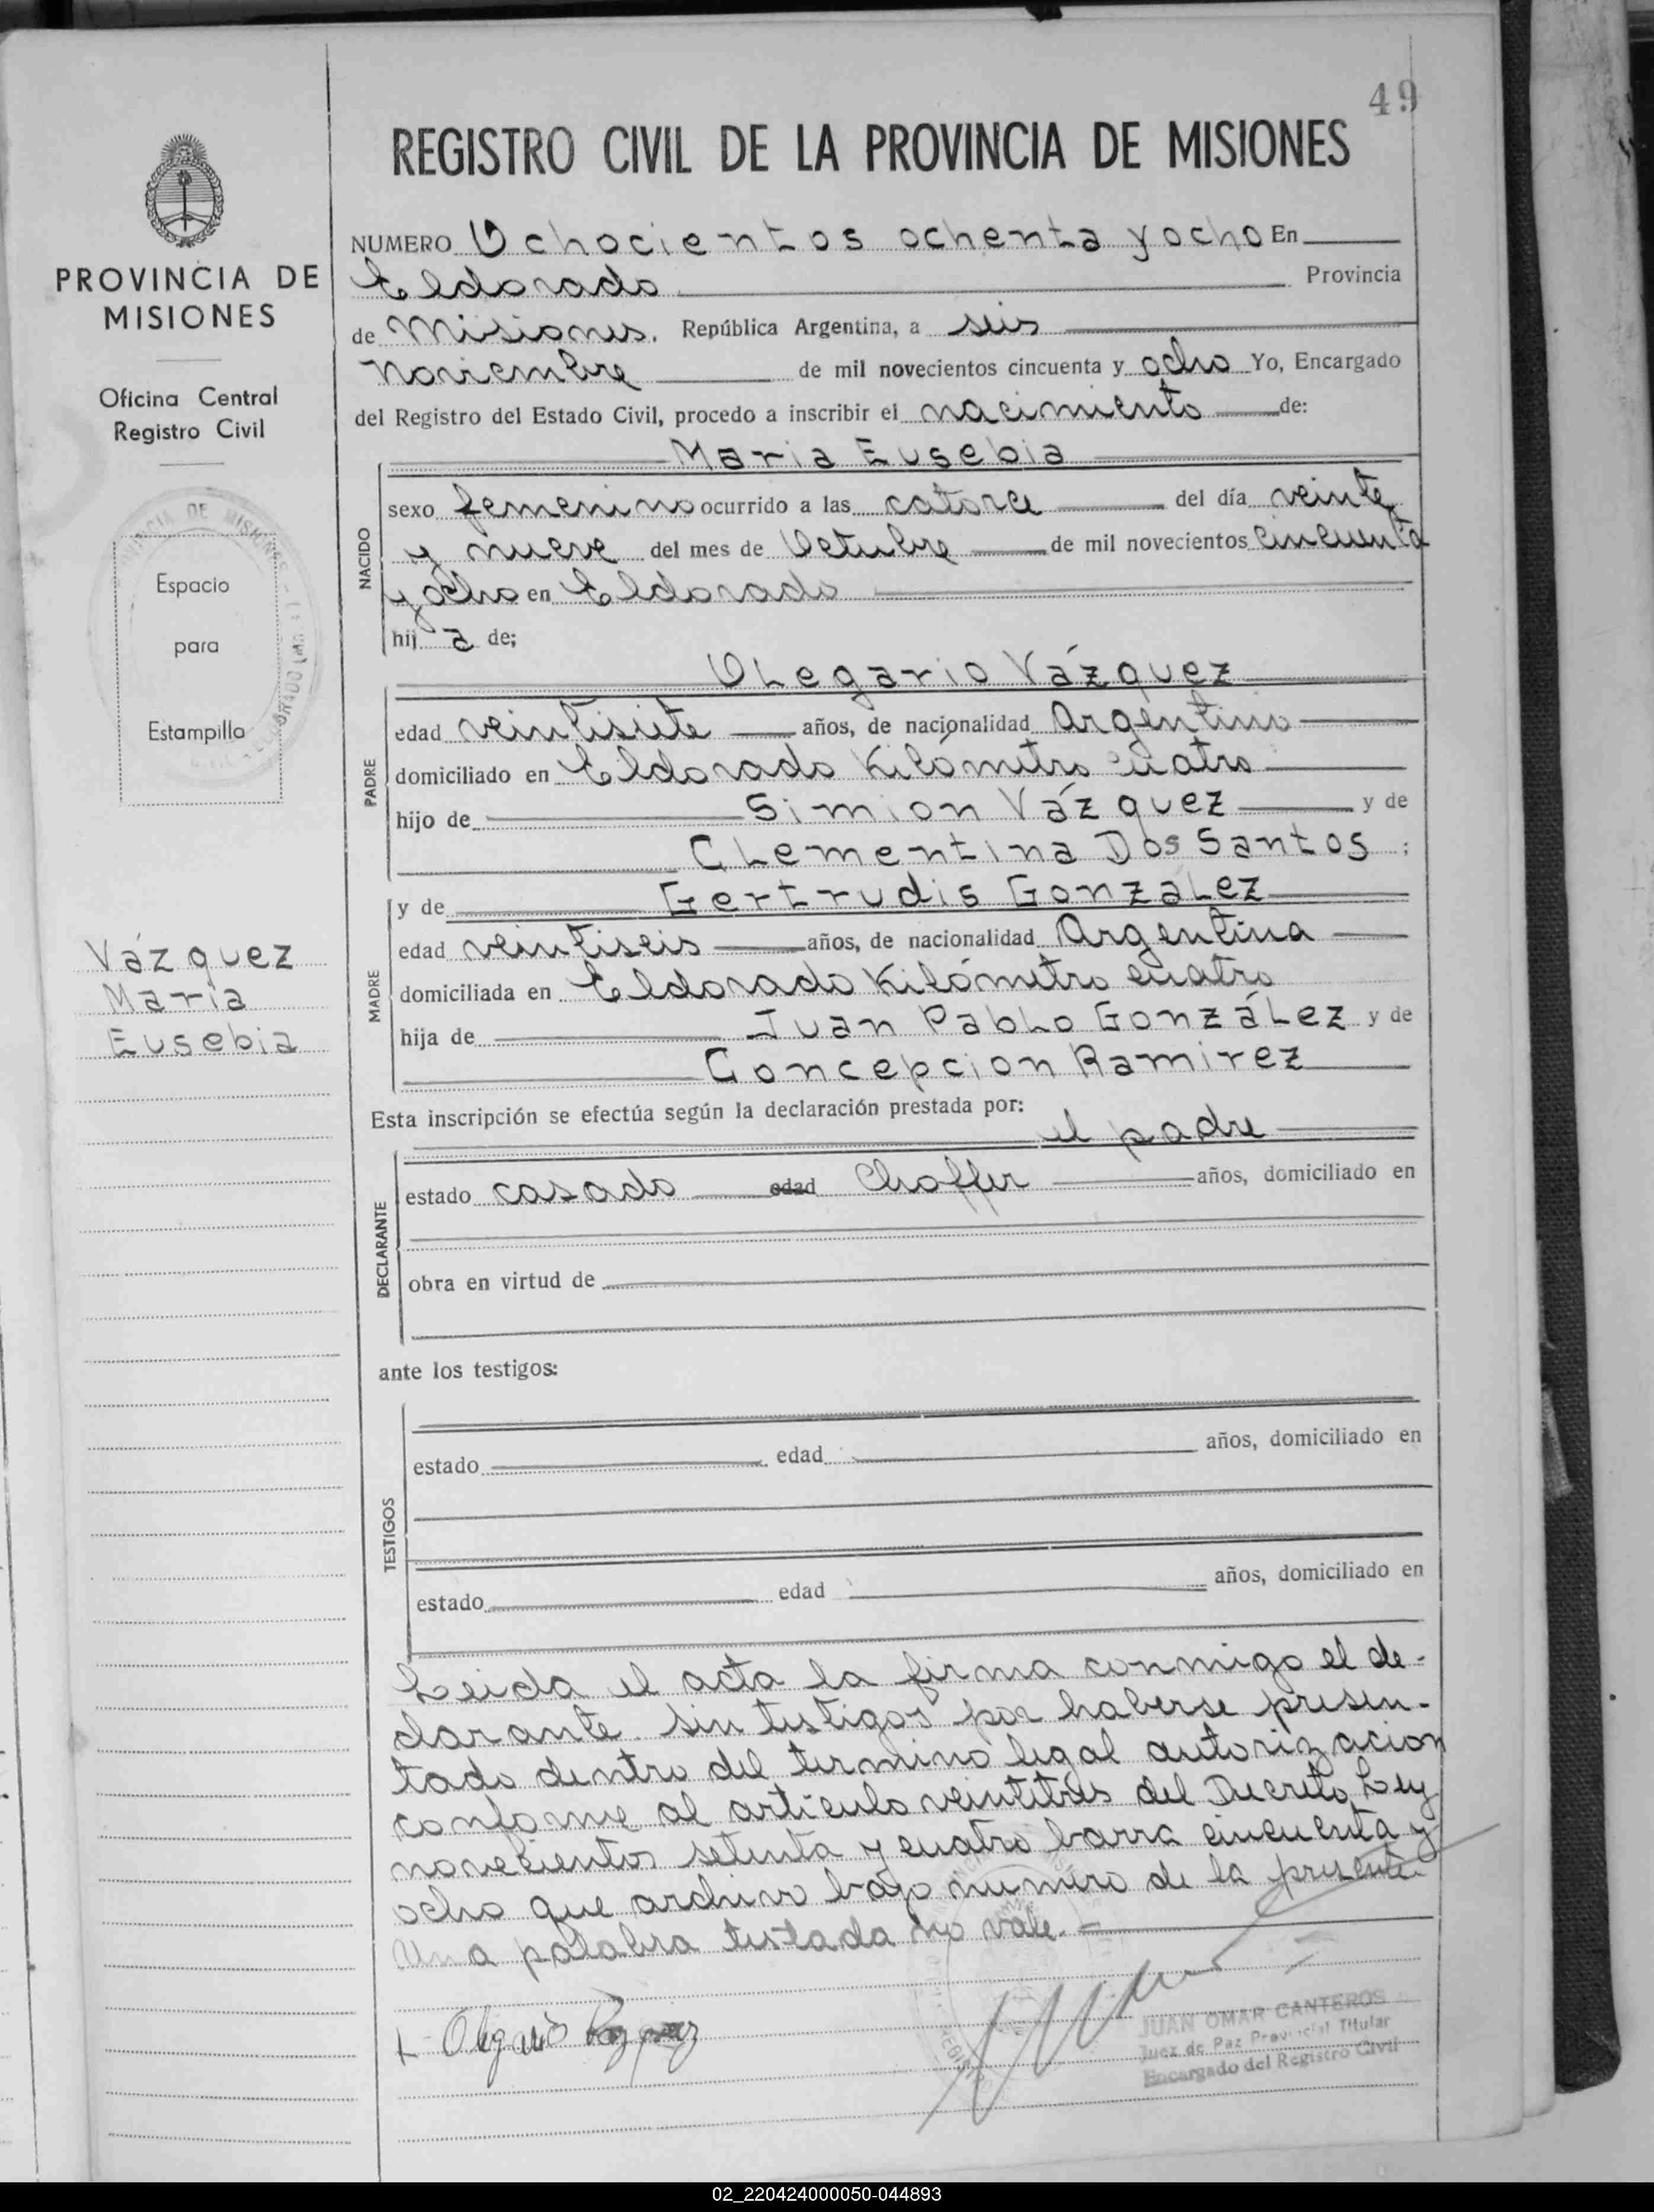 49
REGISTRO CIVIL DE LA PROVINCIA DE MISIONES
PROVINCIA DE
MISIONES
Oficina Central
Registro Civil
Espacio
para
Estampilla
Vázquez
Maria
Eusebia
NUMERO Ochocientos ochenta y ocho En
Eldorado Provincia
de Misiones. República Argentina, a seis
Noviembre de mil novecientos cincuenta y ocho Yo, Encargado
del Registro del Estado Civil, procedo a inscribir el nacimiento de:
Maria Eusebia
NACIDO
sexo femenino ocurrido a las catorce del día veinte
y nueve del mes de Octubre de mil novecientos cincuenta
y ocho en Eldorado
hij a de;
Olegario Vázquez
PADRE
edad veintisiete años, de nacionalidad Argentino
domiciliado en Eldorado Kilómitro cuatro
hijo de Simion Vázquez y de
Clementina Dos Santos ;
y de Gertrudis Gonzalez
MADRE
edad veintiseis años, de nacionalidad Argentina
domiciliada en Eldorado Kilómitro cuatro
hija de Juan Pablo González y de
Concepcion Ramirez
Esta inscripción se efectúa según la declaración prestada por:
el padre
DECLARANTE
estado casado edad Choffer años, domiciliado en
obra en virtud de
ante los testigos:
TESTIGOS
estado edad años, domiciliado en
estado edad años, domiciliado en
Leida el acta la firma conmigo el de-
clarante sin testigos por haberse presen-
tado dentro del termino legal autorizacion
conforme al articulo veintitrés del Decreto Ley
novecientos setenta y cuatro barra cincuenta y
ocho que archivo bajo numero de la presente.
Una palabra testada no vale. -
Olegario Vazquez
JUAN OMAR CANTEROS
Juez de Paz Provincial Titular
Encargado del Registro Civil
02_220424000050-044893